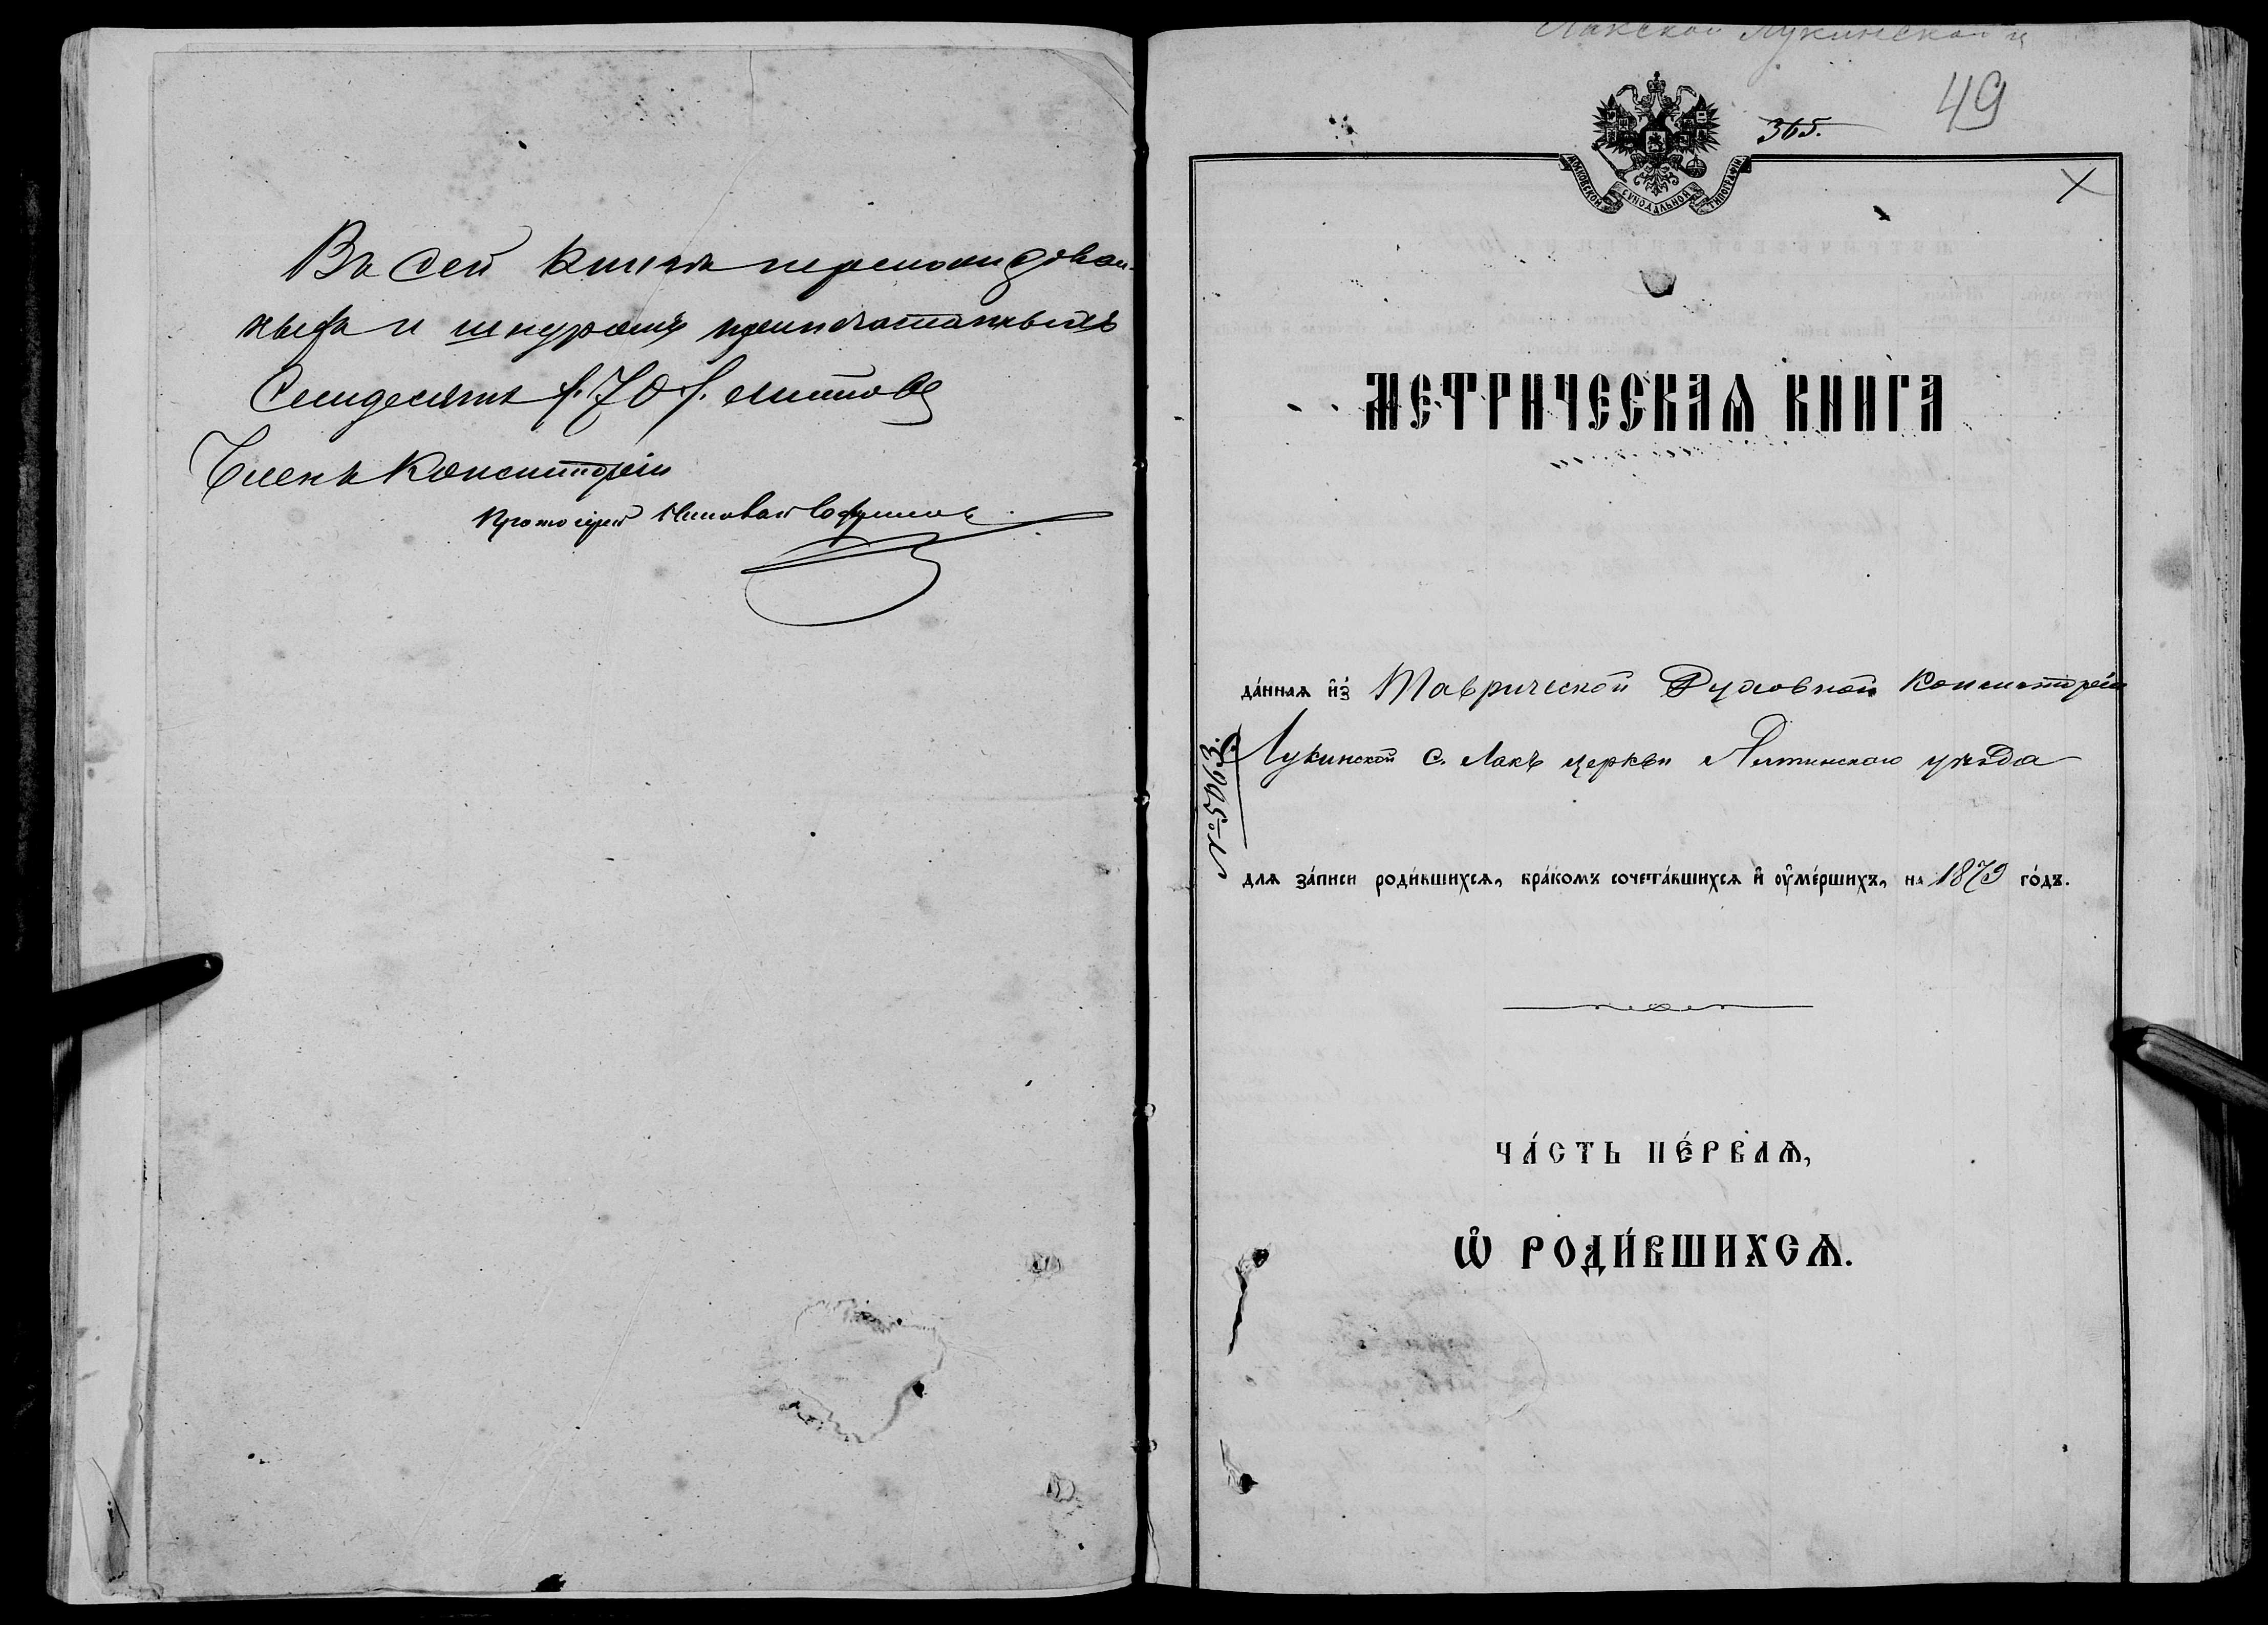 Въ сей книгѣ перенумерован-
ныхъ и шнуромъ припечатанныхъ
Семьдесятъ (70) листовъ
Членъ Консисторіи
Протоіерей
Лакской Лукинской ц
49
365.
МОСКОВСКОЙ СѴНОДАЛЬНОЙ ТИПОГРАФІИ
МЕТРИЧЕСКАѦ КНИГА
да́ннаѧ и҆з̾ Таврической Духовной Консисторіи
Лукинской с. Лакъ церкви Ялтинскаго уѣзда
длѧ за́писи роди́вшихсѧ, бра́комъ сочета́вшихсѧ и҆ ᲂу҆ме́ршихъ, на 1879 го́дъ.
ЧА́СТЬ ПЕ́РВАѦ,
Ѡ҆ РОДИ́ВШИХСѦ.